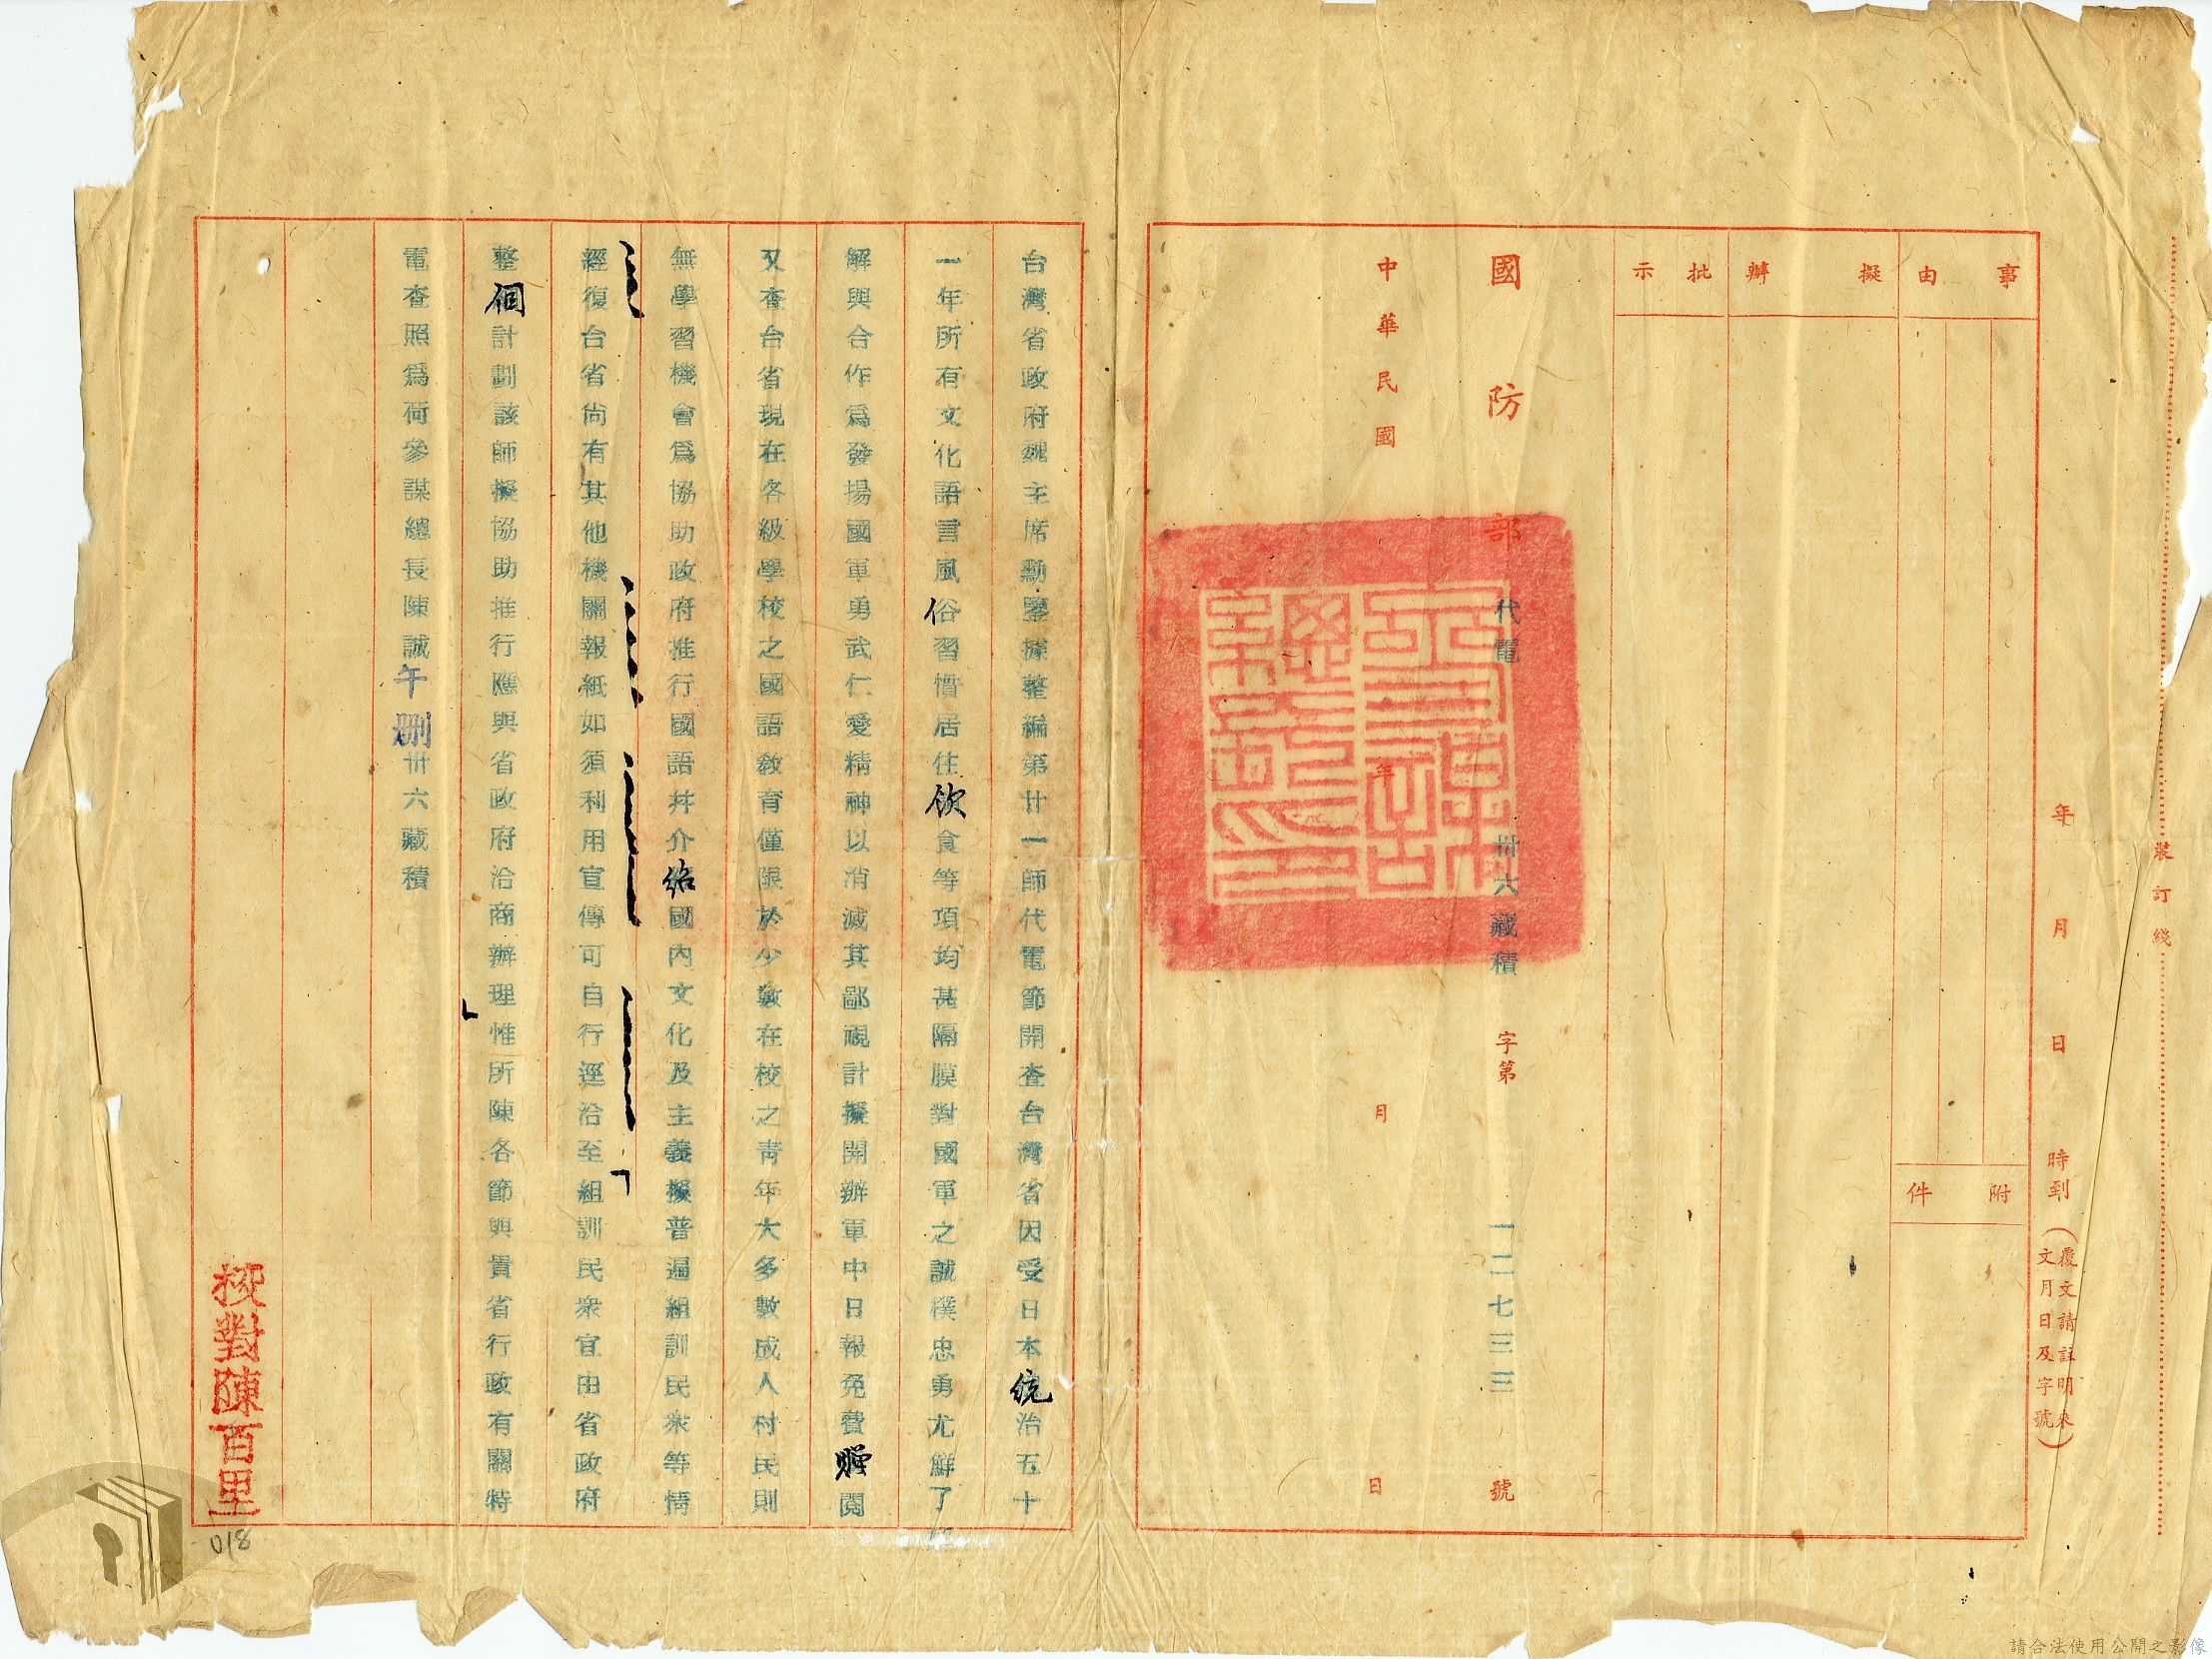 裝訂綫
年 月 日 時到（覆文請註明來文月日及字號）
事由
附件
擬辦
批示
國防部代電 卅六藏積字第一二七三三號
中華民國 年 月 日
台灣省政府魏主席勳鑒據整編第廿一師代電節開查台灣省因受日本統治五十
一年所有文化語言風俗習慣居住飲食等項均甚隔膜對國軍之誠樸忠勇尤鮮了
解與合作爲發揚國軍勇武仁愛精神以消滅其鄙視計擬開辦軍中日報免費贈閱
又查台省現在各級學校之國語教育僅限於少數在校之青年大多數成人村民則
無學習機會爲協助政府推行國語幷介紹國內文化及主義擬普遍組訓民衆等情
經復台省尚有其他機關報紙如須利用宣傳可自行逕洽至組訓民衆宜由省政府
整個計劃該師擬協助推行應與省政府洽商辦理惟所陳各節與貴省行政有關特
電查照爲荷參謀總長陳誠午刪卅六藏積
校對陳百里
018
請合法使用公開之影像